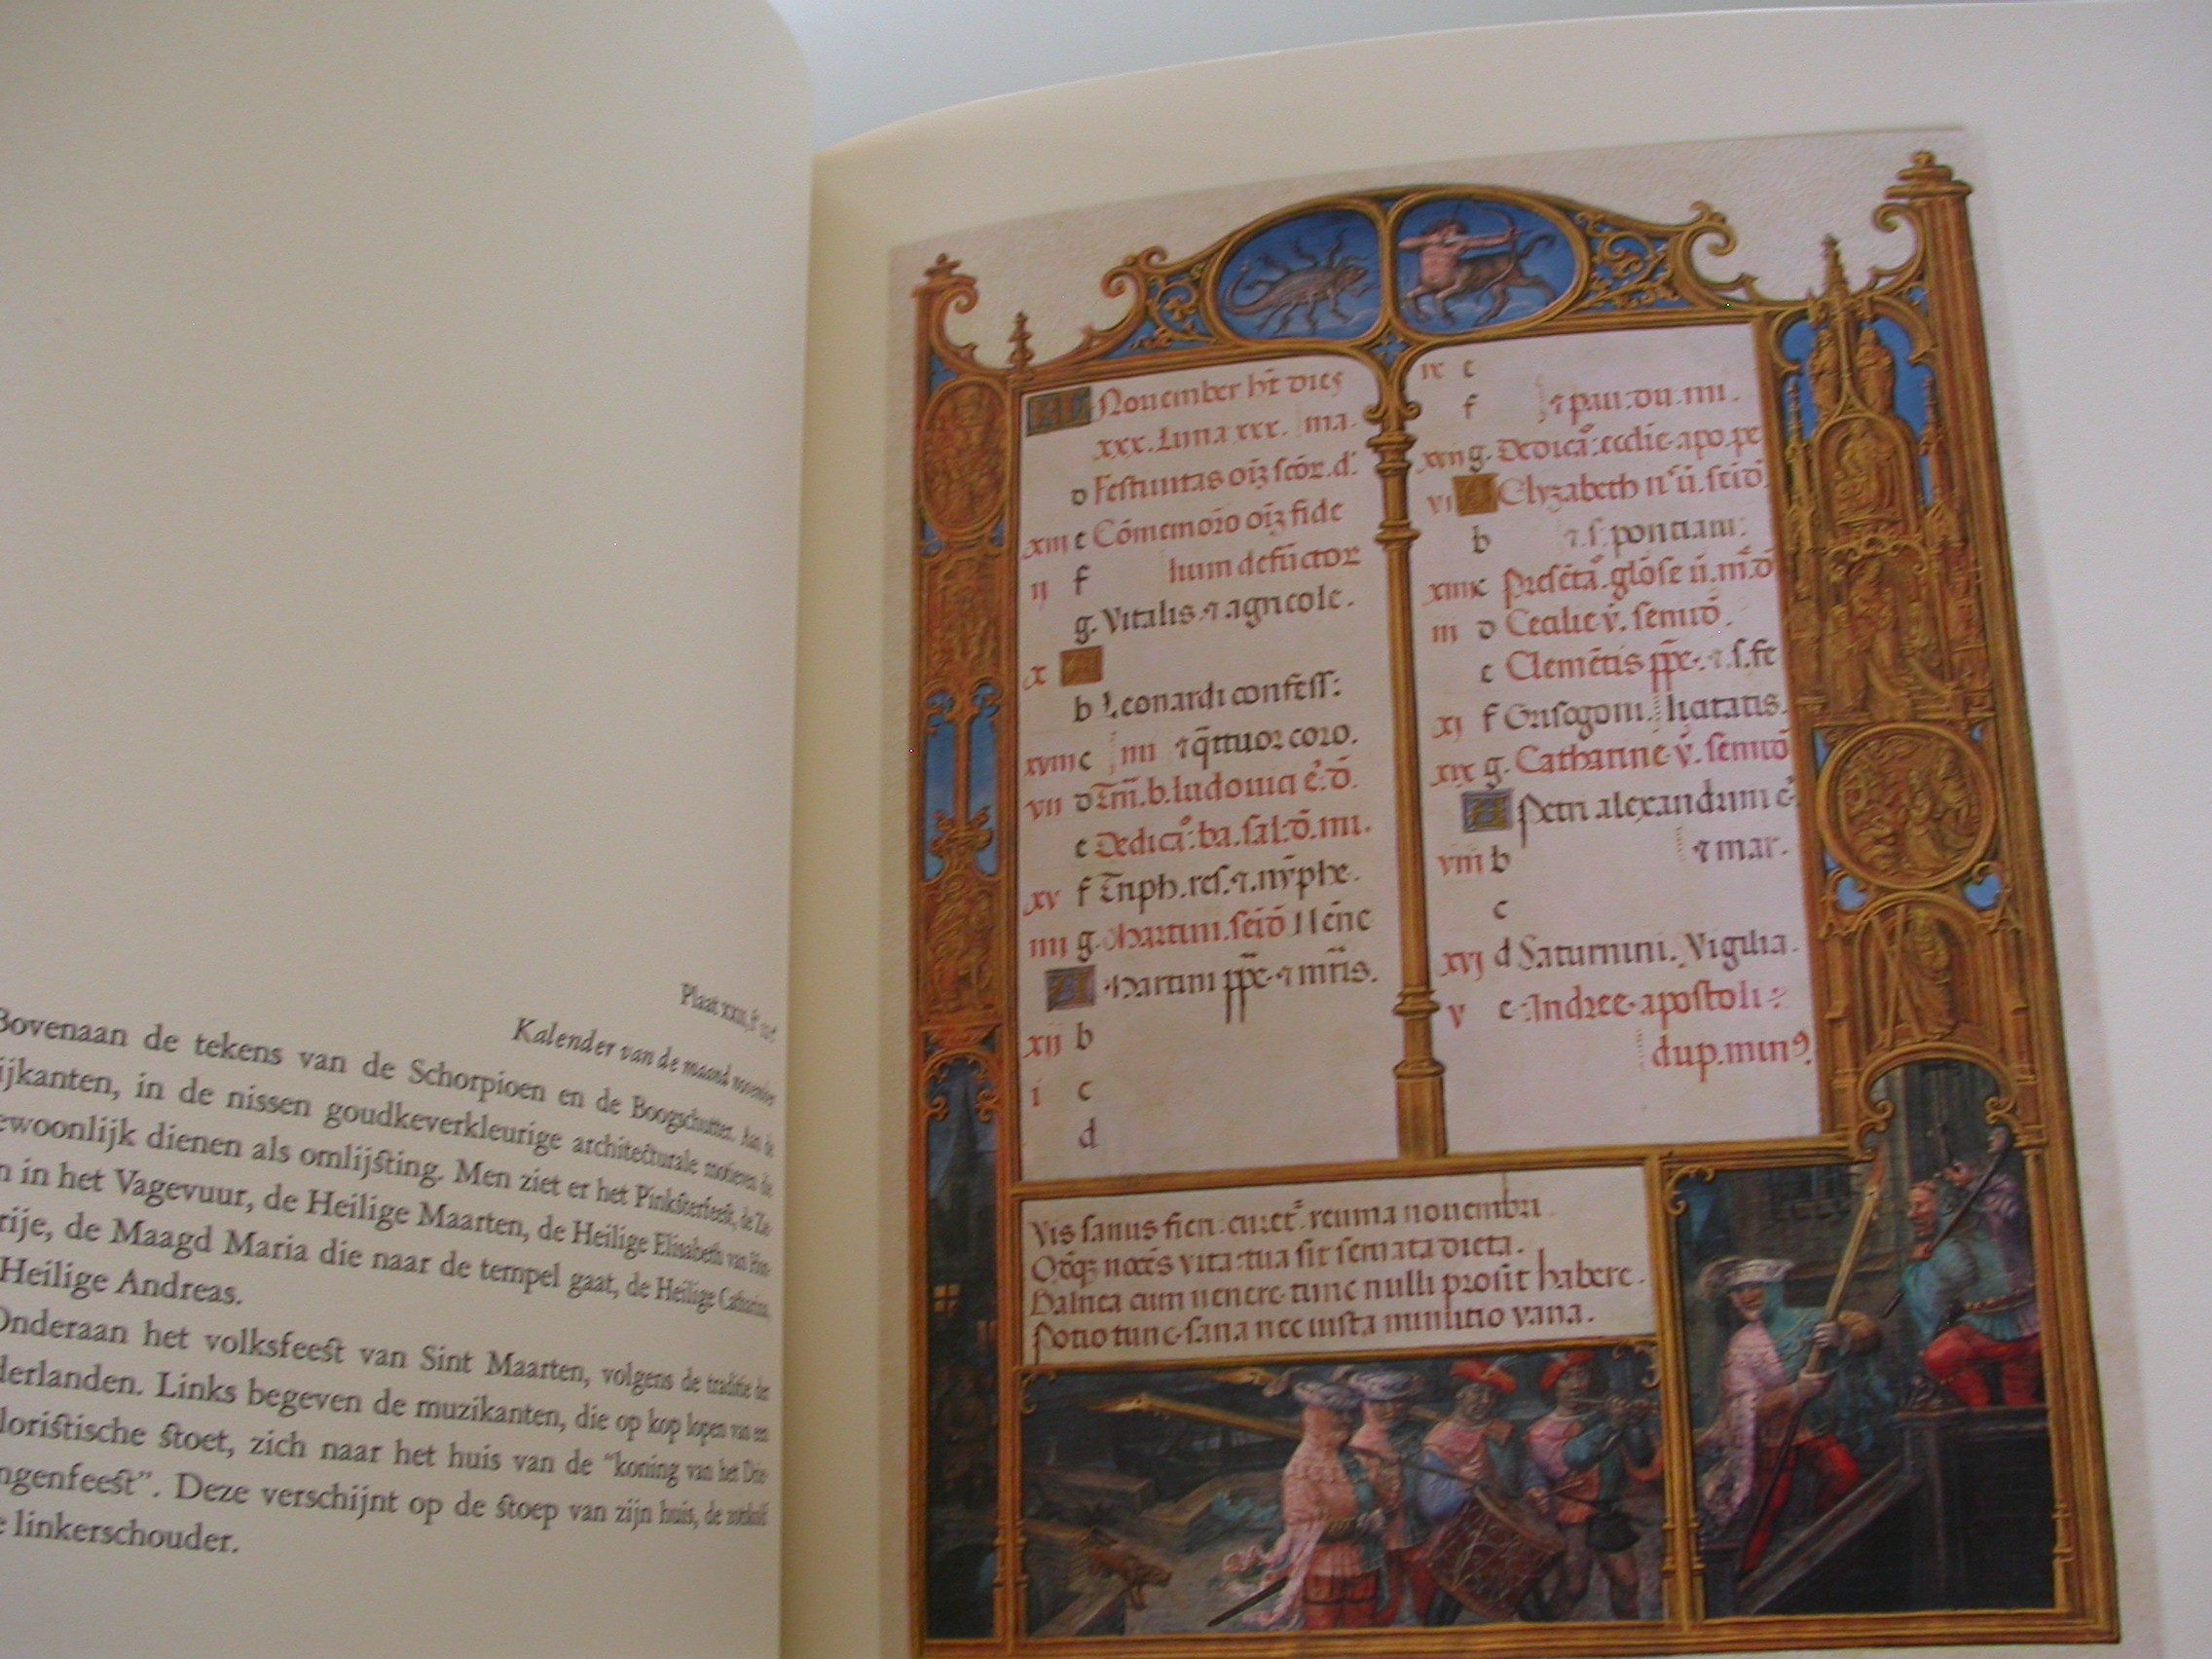 Plaat xxii, f°
Kalender van de maand november
Bovenaan de tekens van de Schorpioen en de Boogschutter. Aan de
ijkanten, in de nissen goudkeverkleurige architecturale motieven die
ewoonlijk dienen als omlijsting. Men ziet er het Pinksterfeest, de
n in het Vagevuur, de Heilige Maarten, de Heilige Elisabeth van
rije, de Maagd Maria die naar de tempel gaat, de Heilige Catharina,
Heilige Andreas.
Onderaan het volksfeest van Sint Maarten, volgens de traditie der
derlanden. Links begeven de muzikanten, die op kop lopen van een
loristische stoet, zich naar het huis van de “koning van het Drie-
ngenfeest”. Deze verschijnt op de stoep van zijn huis, de
e linkerschouder.
KL Nouember ht̄ dies
xxx. Luna xxx. ma.
d Festiuitas oīʒ scōr. d.
xiii e Cōmemoro oīʒ fide
ij f lium defūctor
g. Vitalis ⁊ agricole.
x A
b Leonardi confess:
xviii c iiii ⁊ q̄ttuor coro.
vii d Tm̄. b. ludouici ē. d̄.
e Dedicā: ba. sal: d̄. mi.
xv f Triph. res. ⁊. nȳphe.
iiii g. Martini. seid̄ Mēne
A Martini pp̄e ⁊ mr̄is.
xii b
i c
d
ix e
f ⁊ pau: du: mi.
xvii g. Dedicā: ecclie. apo. pe
vi A Elyzabeth ū. scid̄
b ⁊. s. ponciani:
xiiii c Presētā. glōse ū. m̄. d̄
iii d Cecilie v̄. semid̄.
e Clemētis pp̄e. ⁊. s. fe
xj f Grisogoni. licitatis.
xix g. Catharine v̄. semid̄
A Petri alexandrini ē
viii b ⁊ mar.
c
xvj d Saturnini. Vigilia.
v e Andree apostoli
dup. minꝰ.
Vis sanus fieri: curet. reuma nouembri.
nocēs vita: tua sit seruata dieta.
Balnea cum uenere tunc nulli prosit habere.
Potio tunc sana nec iusta minutio vana.